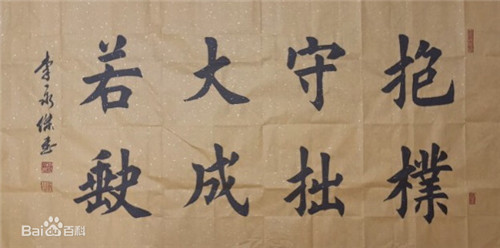 抱樸
守拙
大成
若缺
李永傑書
Bai百科